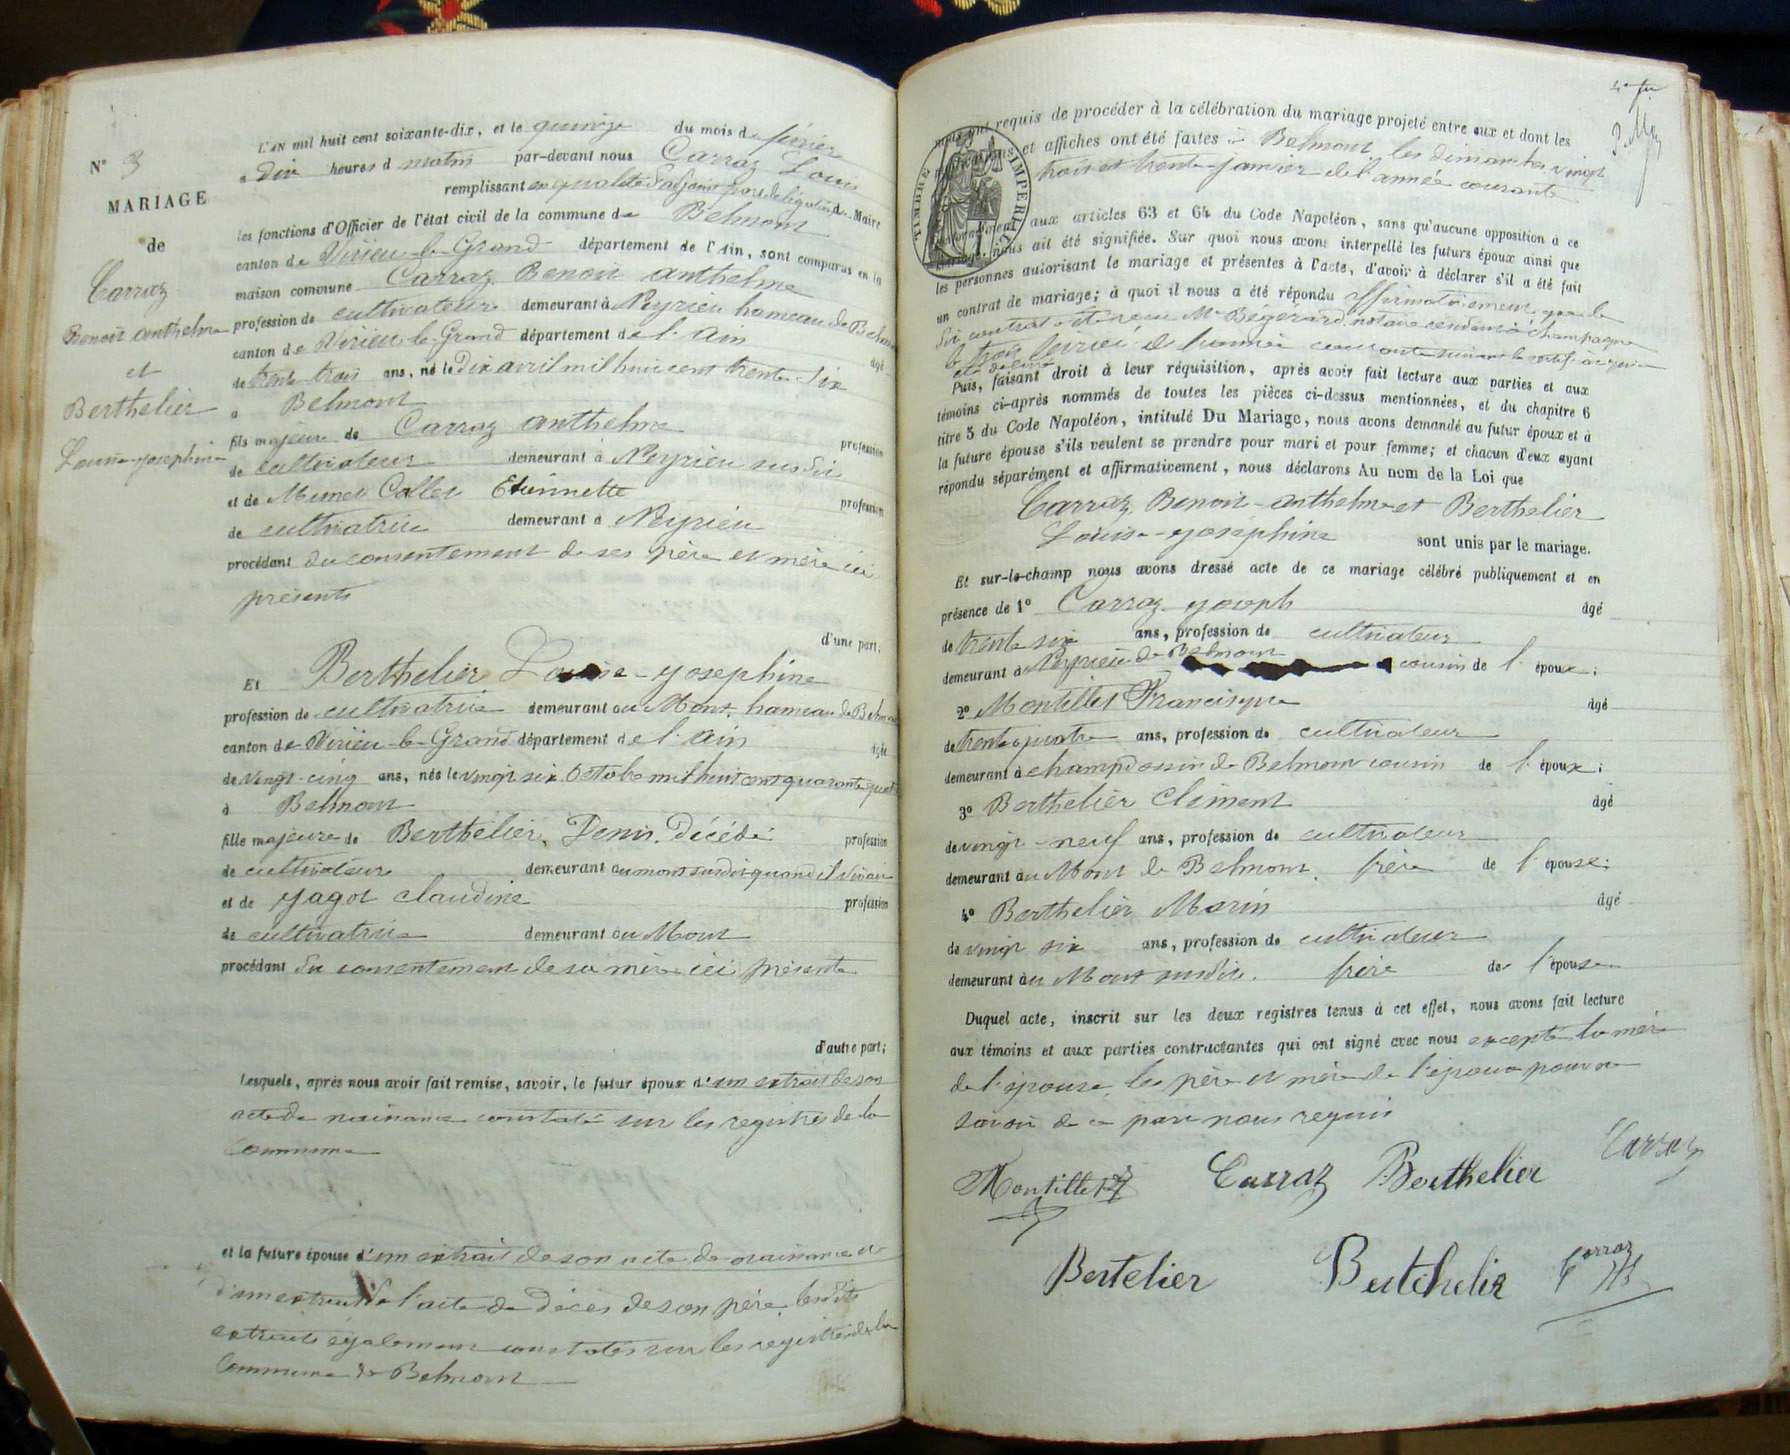 N° 3
MARIAGE
de
Carraz
Benoit anthelme
et
Berthelier
Louise-josephine
L'AN mil huit cent soixante-dix, et le quinze du mois de février
à dix heures d matin par-devant nous Carraz Louis
remplissant en qualité d'adjoint par délégation de Maire
les fonctions d'Officier de l'état civil de la commune de Belmont
canton de Virieu-le-Grand département de l'Ain, sont comparus en la
maison commune Carraz Benoit anthelme
profession de cultivateur demeurant à Neyrieu hameau de Belmont
canton de Virieu-le-Grand département de l'Ain âgé
de trente-trois ans, né le Dix avril mil huit cent trente-six
à Belmont
fils majeur de Carraz anthelme profession
de cultivateur demeurant à Neyrieu susdit
et de Collet Etiennette profession
de cultivatrice demeurant à Neyrieu
procédant du consentement de ses père et mère ici
présents
d'une part;
Et Berthelier Louise-josephine
profession de cultivatrice demeurant au Mont, hameau de Belmont
canton de Virieu-le-Grand département de l'Ain âgée
de vingt-cinq ans, née le vingt six Octobre mil huit cent quarante quatre
à Belmont
fille majeure de Berthelier, Denis, Décédé profession
de cultivateur demeurant au mont susdit quand il vivait
et de Jagot claudine profession
de cultivatrice demeurant au Mont
procédant du consentement de sa mère ici présente
d'autre part;
Lesquels, après nous avoir fait remise, savoir, le futur époux d'un extrait de son
acte de naissance constaté sur les registres de la
Commune
et la future épouse d'un extrait de son acte de naissance et
d'un extrait de l'acte de décès de son père, lesdits
extraits également constatés sur les registres de la
Commune de Belmont
nous ont requis de procéder à la célébration du mariage projeté entre eux et dont les
publications et affiches ont été faites à Belmont les dimanches vingt
trois et trente-janvier de l'année courante
TIMBRE IMPERIAL
aux articles 63 et 64 du Code Napoléon, sans qu'aucune opposition à ce
nous ait été signifiée. Sur quoi nous avons interpellé les futurs époux ainsi que
les personnes autorisant le mariage et présentes à l'acte, d'avoir à déclarer s'il a été fait
un contrat de mariage; à quoi il nous a été répondu affirmativement que le
dit contrat a été reçu Me Begerard notaire résidant à champagne
le trois février de l'année courante suivant le certificat qui
a été délivré
Puis, faisant droit à leur réquisition, après avoir fait lecture aux parties et aux
témoins ci-après nommés de toutes les pièces ci-dessus mentionnées, et du chapitre 6
titre 5 du Code Napoléon, intitulé Du Mariage, nous avons demandé au futur époux et à
la future épouse s'ils veulent se prendre pour mari et pour femme; et chacun d'eux ayant
répondu séparément et affirmativement, nous déclarons Au nom de la Loi que
Carraz, Benoit-anthelme et Berthelier
Louise-josephine sont unis par le mariage.
Et sur-le-champ nous avons dressé acte de ce mariage célébré publiquement et en
présence de 1° Carraz joseph âgé
de trente six ans, profession de cultivateur
demeurant à Neyrieu de Belmont cousin de l'époux;
2° Montillet Francisque âgé
de trente quatre ans, profession de cultivateur
demeurant à champdossin de Belmont cousin de l'époux;
3° Berthelier Clément âgé
de vingt-neuf ans, profession de cultivateur
demeurant au Mont de Belmont, frère de l'épouse;
4° Berthelier Marin âgé
de vingt six ans, profession de cultivateur
demeurant au Mont susdit. frère de l'épouse
Duquel acte, inscrit sur les deux registres tenus à cet effet, nous avons fait lecture
aux témoins et aux parties contractantes qui ont signé avec nous excepté la mère
de l'épouse, les père et mère de l'époux pour ne
savoir de ce par nous requis
Montillet Carraz Berthelier Carraz
Bertelier Bertchelier Carraz